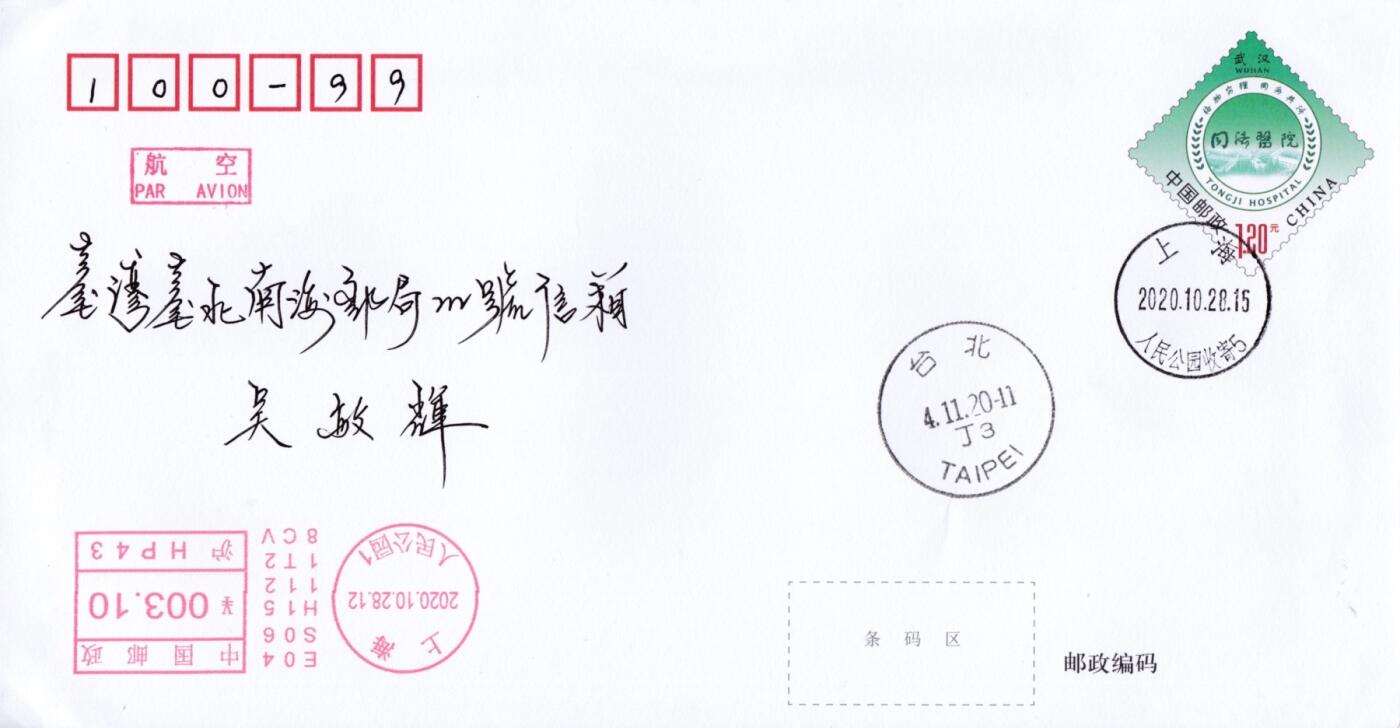 100-99
航 空
PAR AVION
武汉
WUHAN
同济醫院
TONGJI HOSPITAL
中国邮政
CHINA
1.20元
上海
2020.10.28.15
人民公园收寄5
臺灣臺北南海郵局 號信箱
吳敏輝
台北
4.11.20-11
J3
TAIPEI
中国邮政
¥003.10
沪HP43
上海
2020.10.28.12
人民公园1
条码区
邮政编码